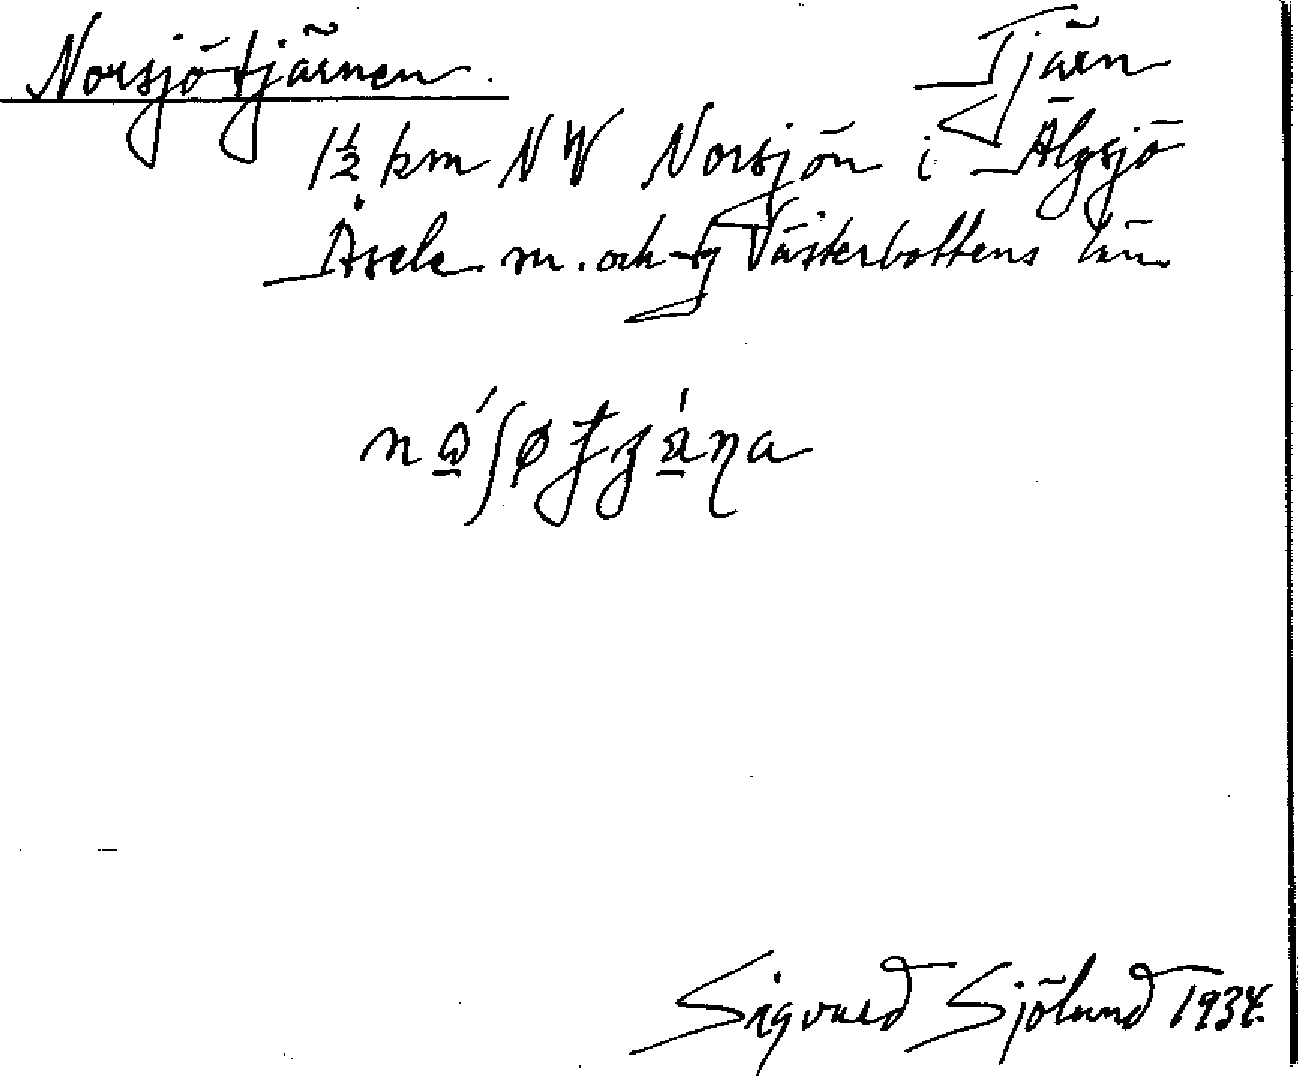 Norsjötjärnen. Tjärn
1½ km NW Norsjön i Älgsjö
Åsele sn. och Västerbottens län
Sigvard Sjölund 1934.